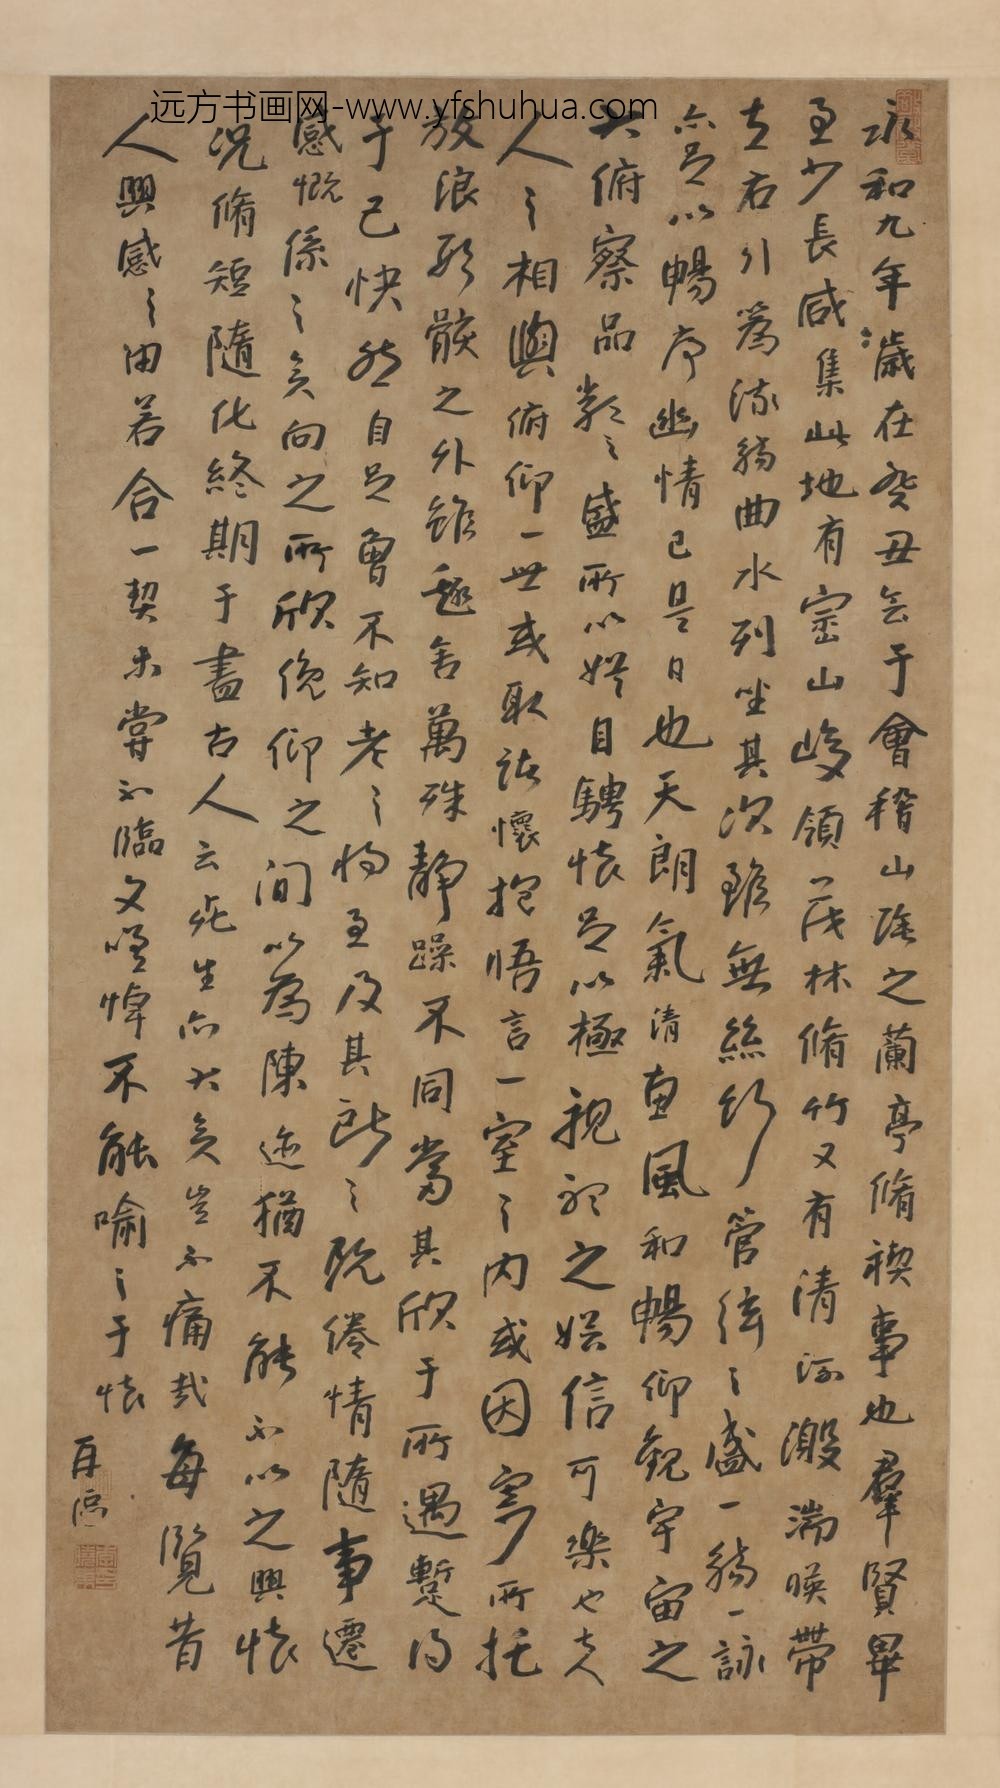 远方书画网-www.yfshuhua.com
永和九年歲在癸丑會于會稽山陰之蘭亭脩禊事也羣賢畢
至少長咸集此地有崇山峻領茂林脩竹又有清流激湍暎帶
左右引為流觴曲水列坐其次雖無絲竹管弦之盛一觴一詠
亦足以暢序幽情已是日也天朗氣清惠風和暢仰觀宇宙之
大俯察品類之盛所以遊目騁懷足以極視聽之娛信可樂也夫
人之相與俯仰一世或取諸懷抱悟言一室之內或因寄所托
放浪形骸之外雖趣舍萬殊靜躁不同當其欣于所遇暫得
于己快然自足曾不知老之將至及其所之既倦情隨事遷
感慨係之矣向之所欣俛仰之間以為陳迹猶不能不以之興懷
況脩短隨化終期于盡古人云死生亦大矣豈不痛哉每覽昔
人興感之由若合一契未嘗不臨文嗟悼不能喻之于懷
再臨